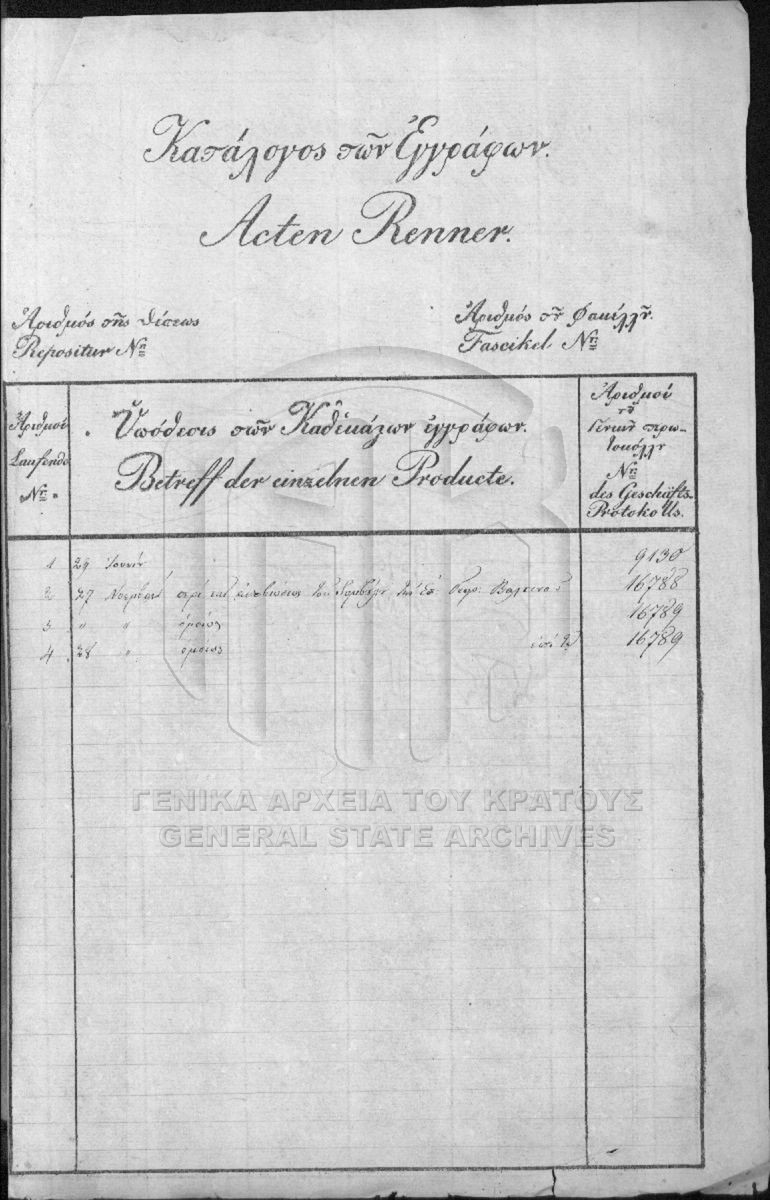 Κατάλογος τῶν Ἐγγράφων.
Acten Renner.
Ἀριθμός τῆς θέσεως
Repositur Nr.
Ἀριθμός τοῦ Φακέλλου.
Fascikel Nr.
Ἀριθμοί
Laufende
Nr.
Ὑπόθεσις τῶν Καθέκαστων ἐγγράφων.
Betreff der einzelnen Producte.
Ἀριθμοί
τοῦ
Γενικοῦ πρωτοκόλλου
Nr.
des Geschäfts-
Protokolls.
1 29 Ἰουνίου 9130
2 27 Νοεμβρίου περί 16788
3 " " ὁμοίως 16789
4 28 " ὁμοίως 16789
ΓΕΝΙΚΑ ΑΡΧΕΙΑ ΤΟΥ ΚΡΑΤΟΥΣ
GENERAL STATE ARCHIVES